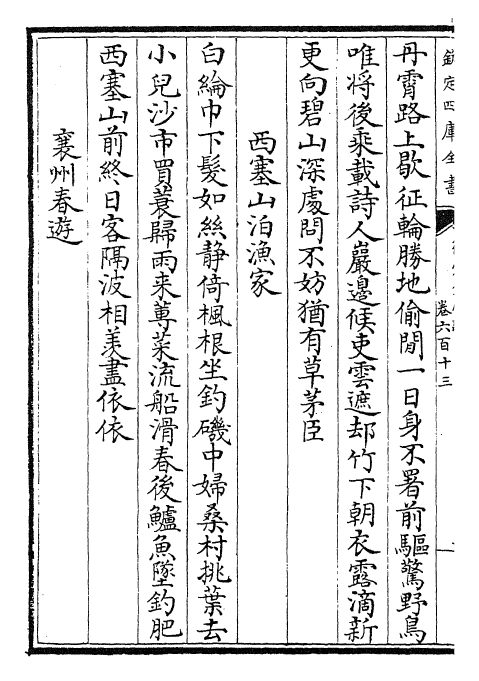 欽定四庫全書
卷六百十三
丹霄路上歇征輪勝地偷閒一日身不署前驅驚野鳥
唯将後乘載詩人巖邉候吏雲遮却竹下朝衣露滴新
更向碧山深處問不妨猶有草茅臣
西塞山泊漁家
白綸巾下髮如絲静倚楓根坐釣磯中婦桑村挑葉去
小兒沙市買蓑歸雨来蓴菜流船滑春後鱸魚墜釣肥
西塞山前終日客隔波相羡盡依依
襄州春遊